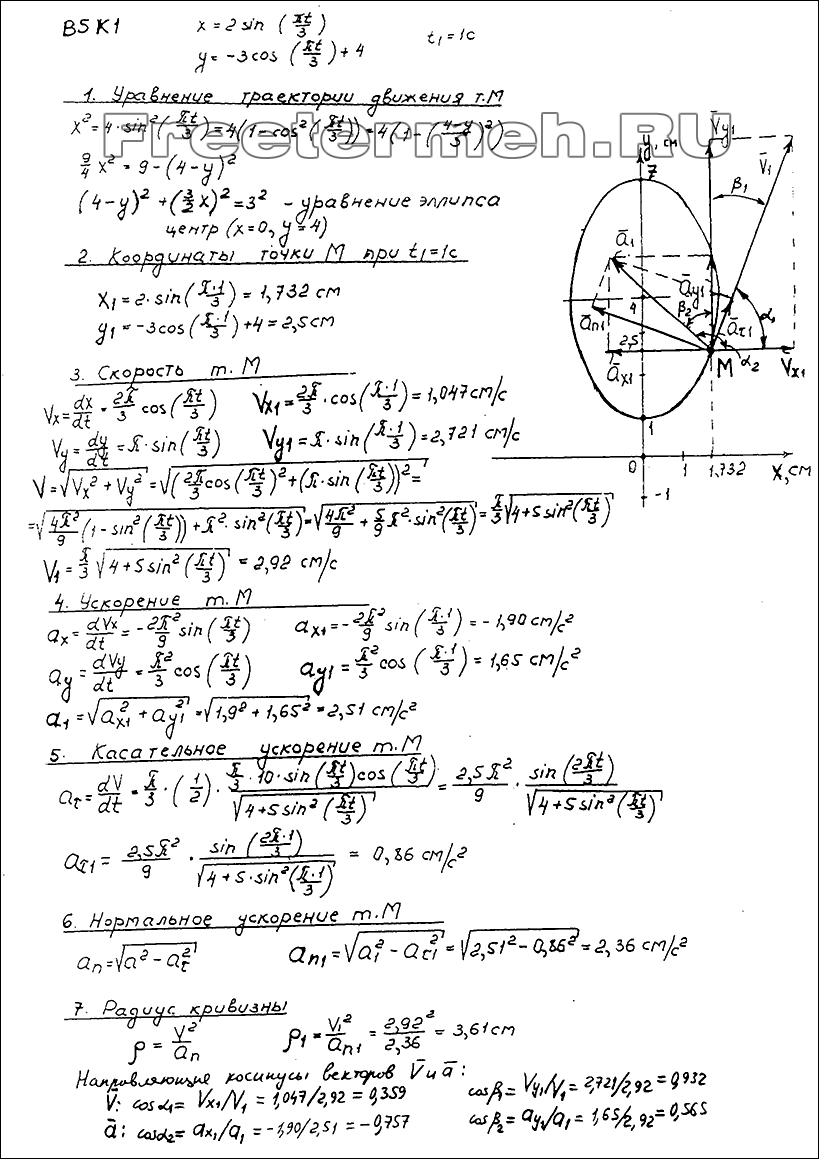 В5 К1
x = 2 sin (πt/3)
y = -3cos (πt/3) + 4
t₁ = 1c
1. Уравнение траектории движения т.М
x² = 4·sin²(πt/3) = 4(1 - cos²(πt/3)) = 4(1 - (4-y/3)²)
Freetermeh.RU
9/4 x² = 9 - (4-y)²
(4-y)² + (3/2 x)² = 3² - уравнение эллипса
центр (x=0, y=4)
2. Координаты точки М при t₁=1c
x₁ = 2·sin(π·1/3) = 1,732 см
y₁ = -3cos(π·1/3) + 4 = 2,5 см
3. Скорость т. М
Vx = dx/dt = 2π/3 cos(πt/3) Vx₁ = 2π/3 · cos(π·1/3) = 1,047 см/с
Vy = dy/dt = π·sin(πt/3) Vy₁ = π·sin(π·1/3) = 2,721 см/с
V = √(Vx² + Vy²) = √((2π/3 cos(πt/3))² + (π·sin(πt/3))²) =
= √(4π²/9 (1 - sin²(πt/3)) + π²·sin²(πt/3)) = √(4π²/9 + 5/9 π²·sin²(πt/3)) = π/3 √(4+5sin²(πt/3))
V₁ = π/3 √(4+5sin²(πt/3)) = 2,92 см/с
4. Ускорение т. М
ax = dVx/dt = -2π²/9 sin(πt/3) ax₁ = -2π²/9 sin(π·1/3) = -1,90 см/с²
ay = dVy/dt = π²/3 cos(πt/3) ay₁ = π²/3 cos(π·1/3) = 1,65 см/с²
a₁ = √(ax₁² + ay₁²) = √(1,9² + 1,65²) = 2,51 см/с²
5. Касательное ускорение т. М
aτ = dV/dt = π/3 · (1/2) · π/3·10·sin(πt/3)cos(πt/3) / √(4+5sin²(πt/3)) = 2,5π²/9 · sin(2πt/3) / √(4+5sin²(πt/3))
aτ₁ = 2,5π²/9 · sin(2π·1/3) / √(4+5·sin²(π·1/3)) = 0,86 см/с²
6. Нормальное ускорение т. М
an = √(a² - aτ²) an₁ = √(a₁² - aτ₁²) = √(2,51² - 0,86²) = 2,36 см/с²
7. Радиус кривизны
ρ = V²/an ρ₁ = V₁²/an₁ = 2,92²/2,36 = 3,61 см
Направляющие косинусы векторов V̄ и ā:
V̄: cosα₁ = Vx₁/V₁ = 1,047/2,92 = 0,359 cosβ₁ = Vy₁/V₁ = 2,721/2,92 = 0,932
ā: cosα₂ = ax₁/a₁ = -1,90/2,51 = -0,757 cosβ₂ = ay₁/a₁ = 1,65/2,92 = 0,565
y, см
7
V̄y₁
V̄₁
β₁
ā₁
āy₁
α₁
4
β₂
ān₁
āτ₁
2,5
āx₁
M
α₂
V̄x₁
1
0
1
1,732
x, см
-1